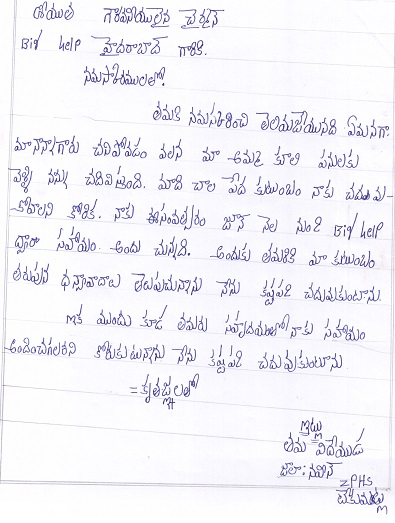 శ్రీయుత గౌరవనీయులైన చైర్మన్
Big Help హైదరాబాద్ గారికి.
నమస్కారములతో.
తమకి నమస్కరించి తెలియజేయునది ఏమనగా.
మా నాన్నగారు చనిపోవడం వలన మా అమ్మ కూలి పనులకు
వెళ్ళి నన్ను చదివిస్తుంది. మాది చాల పేద కుటుంబం నాకు చదువు-
కోవాలని కోరిక. నాకు ఈసంవత్సరం జూన్ నెల నుంచి Big Help
ద్వారా సహాయం అందు చున్నది. అందుకు తమరికి మా కుటుంబం
తరుపున ధన్యావాదాలు తెలుపుచున్నాను నేను కష్టపడి చదువుకుంటాను.
ఇక ముందు కూడ తమరు సహృదయంతో నాకు సహాయం
అందించగలరని కోరుకుటున్నాను నేను కష్టపడి చదువుకుంటాను
= కృతజ్ఞలతో
ఇట్లు
తమ విదేయుడ
జలా: నవీన్
ZPHS
టేకుమట్ల